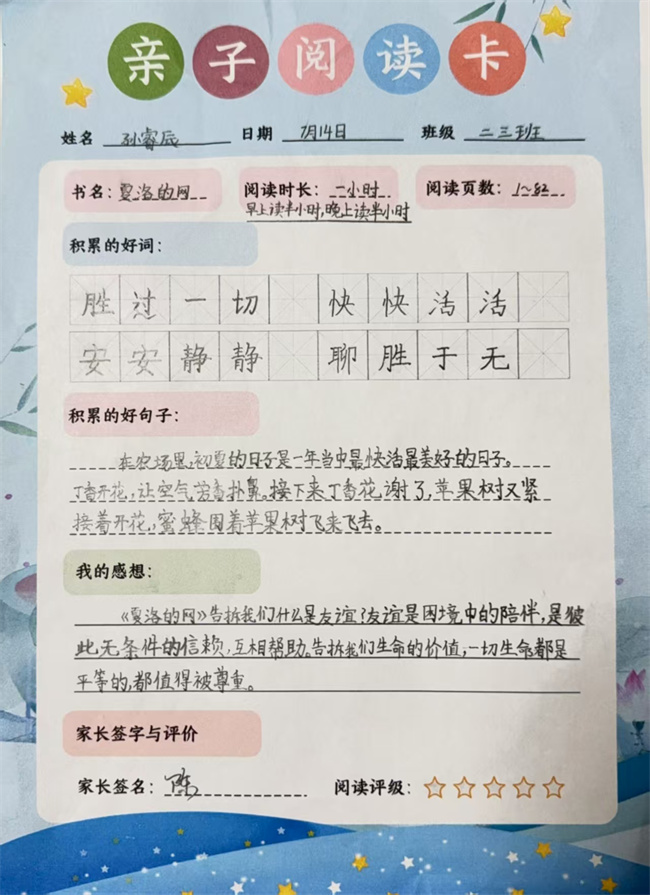 亲子阅读卡
姓名 孙睿辰 日期 7月14日 班级 二三班
书名：夏洛的网 阅读时长：一小时 阅读页数：1~82
早上读半小时，晚上读半小时
积累的好词：
胜过一切 快快活活
安安静静 聊胜于无
积累的好句子：
在农场里，初夏的日子是一年当中最快活最美好的日子。
丁香开花，让空气芳香扑鼻。接下来丁香花谢了，苹果树又紧
接着开花，蜜蜂围着苹果树飞来飞去。
我的感想：
《夏洛的网》告拆我们什么是友谊？友谊是困境中的陪伴，是彼
此无条件的信赖，互相帮助。告拆我们生命的价值，一切生命都是
平等的，都值得被尊重。
家长签字与评价
家长签名：陈 阅读评级：